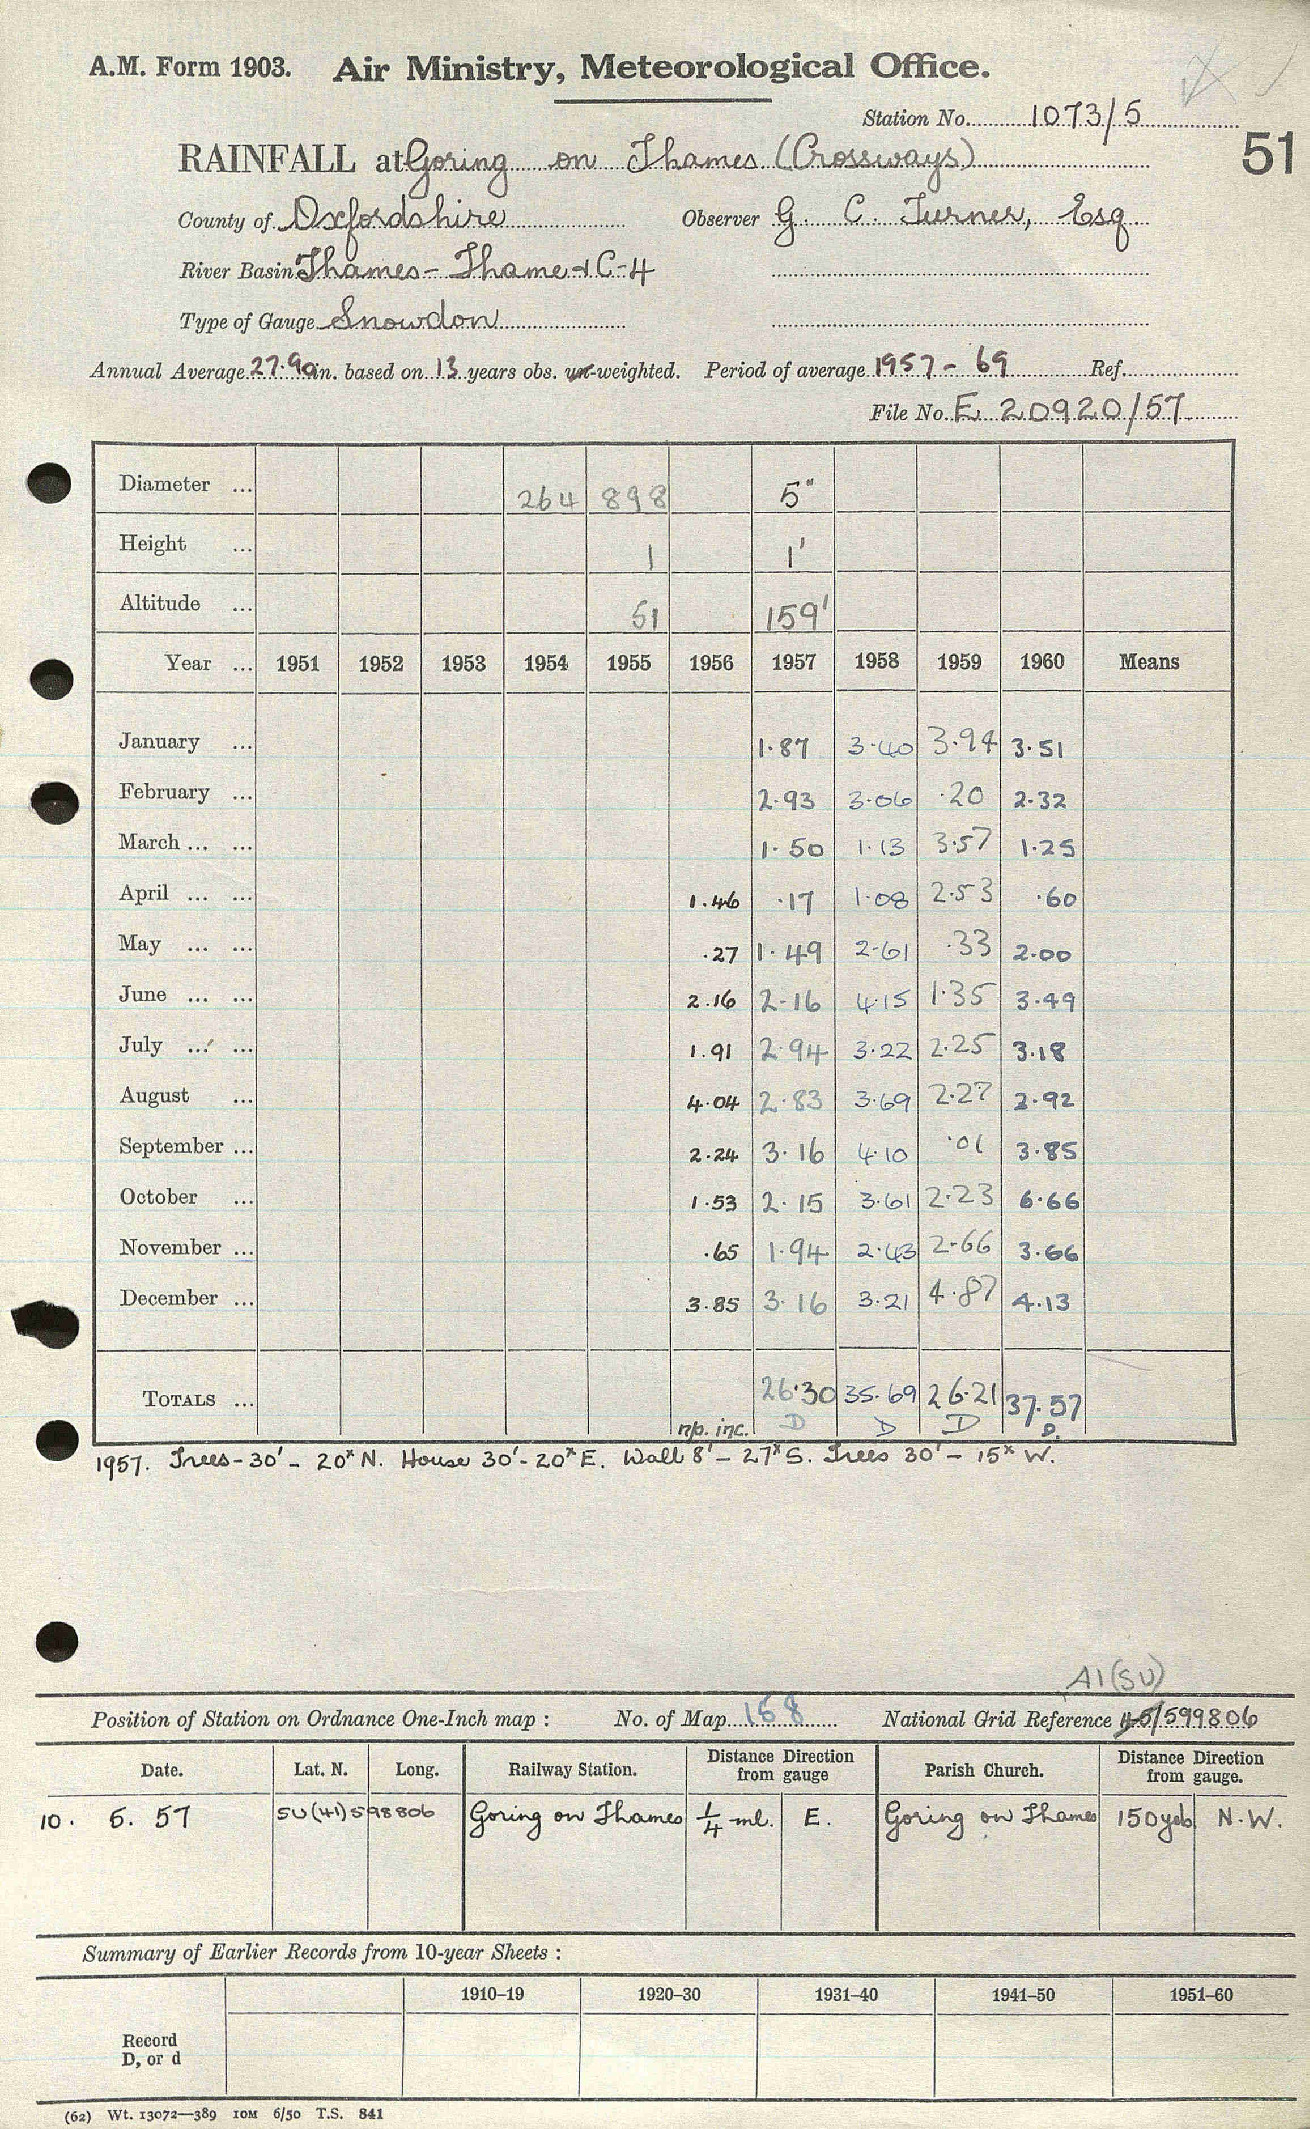 A.M. Form 1903. Air Ministry, Meteorological Office.
Station No. 1073/5
RAINFALL at Goring on Thames (Crossways)
51
County of Oxfordshire Observer G. C. Turner, Esq
River Basin Thames - Thame + C-4
Type of Gauge Snowdon
Annual Average 27.90 in. based on 13 years obs. un-weighted. Period of average 1957 - 69 Ref.
File No. E 20920/57
Diameter ... 264 898 5"
Height ... 1 1'
Altitude ... 51 159'
Year ... 1951 1952 1953 1954 1955 1956 1957 1958 1959 1960 Means
January ... 1.87 3.40 3.94 3.51
February ... 2.93 3.06 .20 2.32
March ... ... 1.50 1.13 3.57 1.25
April ... ... 1.46 .17 1.08 2.53 .60
May ... ... .27 1.49 2.61 .33 2.00
June ... ... 2.16 2.16 4.15 1.35 3.49
July ... ... 1.91 2.94 3.22 2.25 3.18
August ... 4.04 2.83 3.69 2.27 2.92
September ... 2.24 3.16 4.10 .01 3.85
October ... 1.53 2.15 3.61 2.23 6.66
November ... .65 1.94 2.43 2.66 3.66
December ... 3.85 3.16 3.21 4.87 4.13
TOTALS ... 26.30 35.69 26.21 37.57
np. inc. D D D D.
1957. Trees - 30' - 20ˣ N. House 30' - 20ˣ E. Wall 8' - 27ˣ S. Trees 30' - 15ˣ W.
A1(SU)
Position of Station on Ordnance One-Inch map : No. of Map 158 National Grid Reference 45/599806
Date. Lat. N. Long. Railway Station. Distance Direction from gauge Parish Church. Distance Direction from gauge.
10. 5. 57 SU(41)598806 Goring on Thames 1/4 ml. E. Goring on Thames 150 yds N.W.
Summary of Earlier Records from 10-year Sheets :
1910–19 1920–30 1931–40 1941–50 1951–60
Record
D, or d
(62) Wt. 13072—389 10M 6/50 T.S. 841